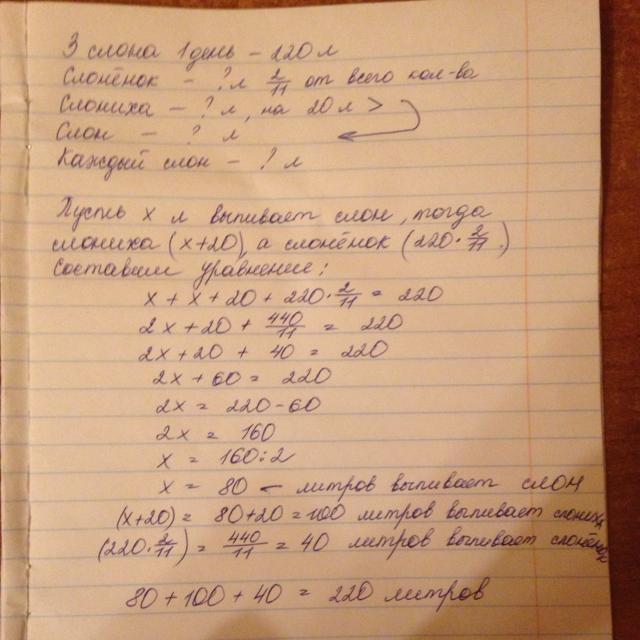 3 слона 1 день - 220 л
Слонёнок - ? л 2/11 от всего кол-ва
Слониха - ? л, на 20 л >
Слон - ? л
Каждый слон - ? л
Пусть х л выпивает слон, тогда
слониха (х+20), а слонёнок (220·2/11.)
Составим уравнение:
х + х + 20 + 220·2/11 = 220
2х + 20 + 440/11 = 220
2х + 20 + 40 = 220
2х + 60 = 220
2х = 220-60
2х = 160
х = 160:2
х = 80 - литров выпивает слон
(х+20) = 80+20 = 100 литров выпивает слониха
(220·2/11) = 440/11 = 40 литров выпивает слонёнок
80 + 100 + 40 = 220 литров